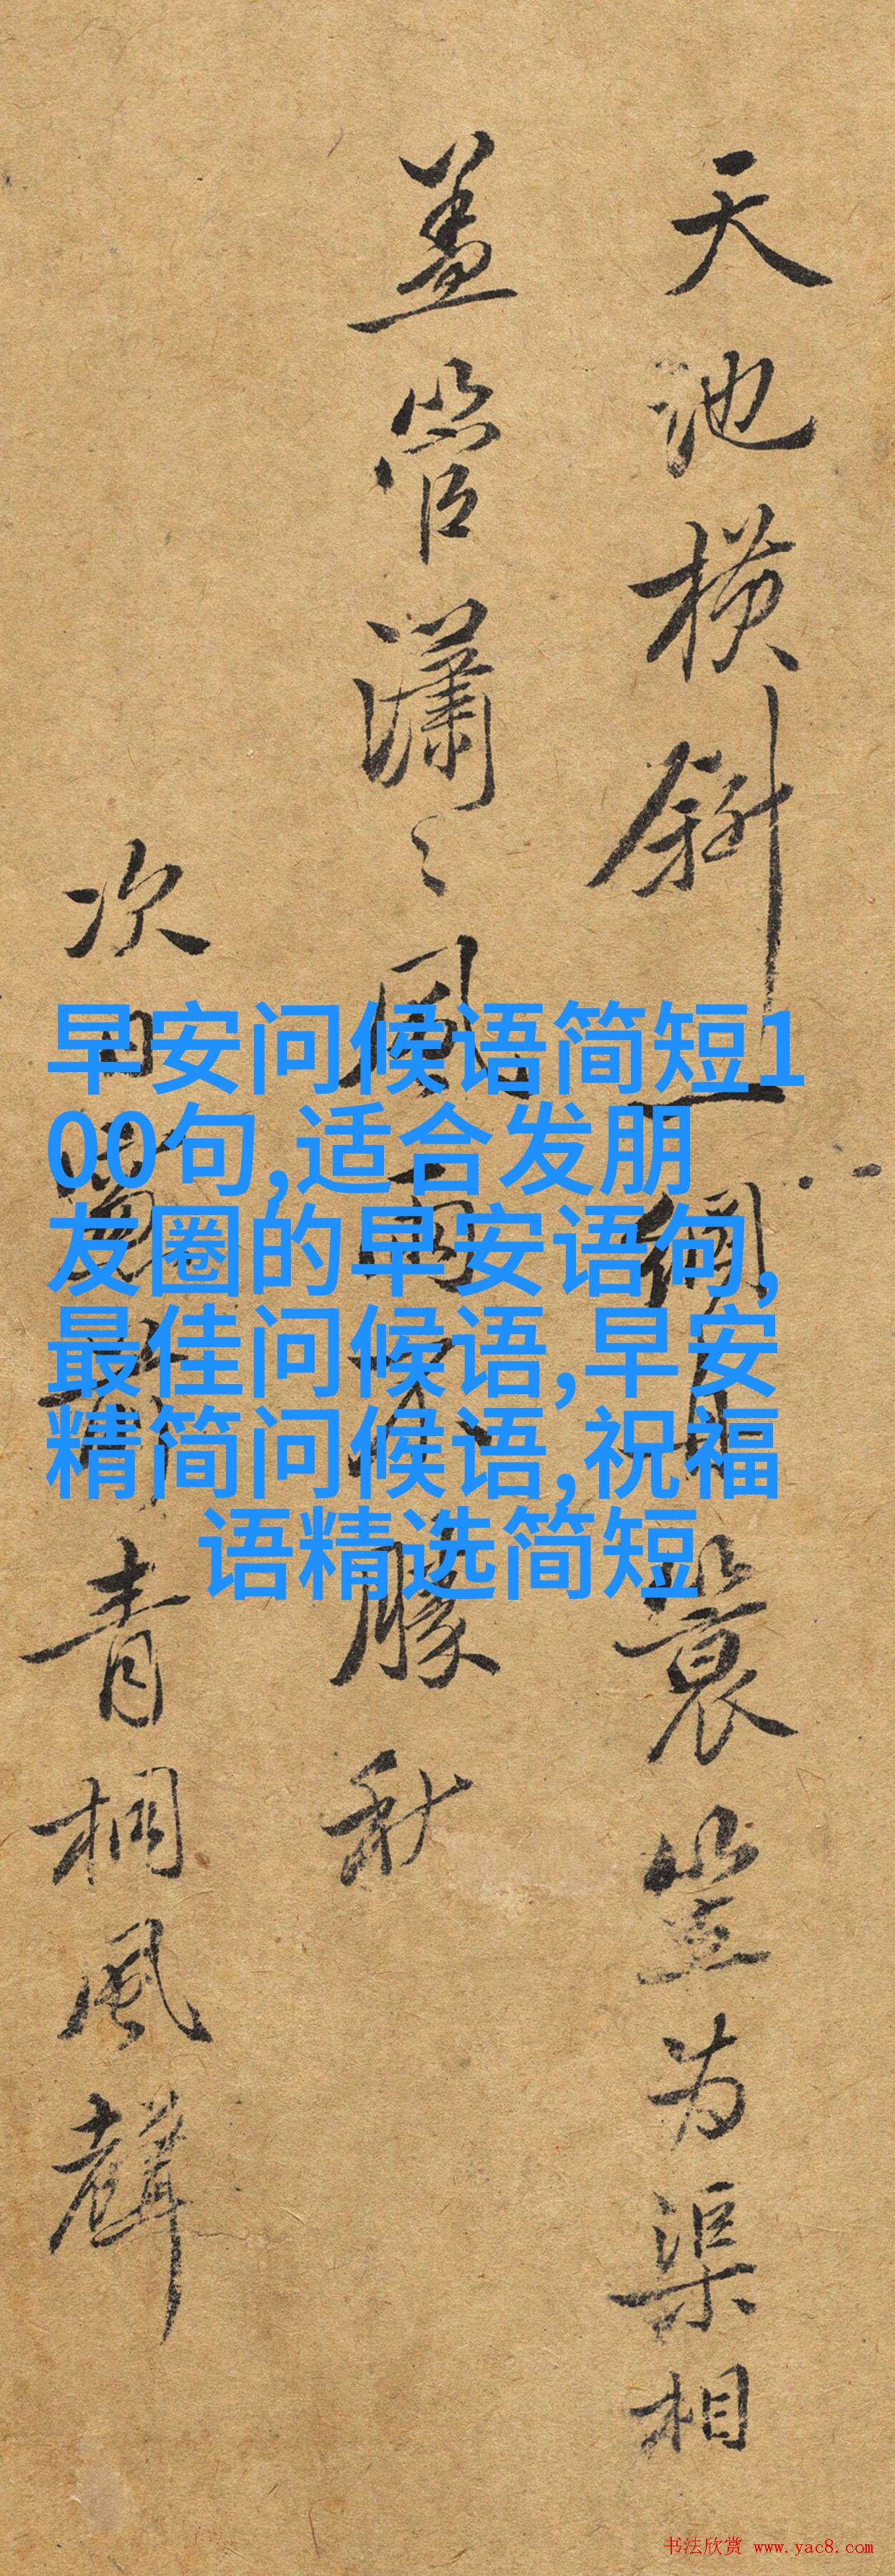 天池橫斜一網舟蓑笠为渠相
盖管瀟〻風雨不勝秋
次日青桐風聲
早安问候语简短1
00句,适合发朋
友圈的早安语句,
最佳问候语,早安
精简问候语,祝福
语精选简短
书法欣赏 www.yac8.com